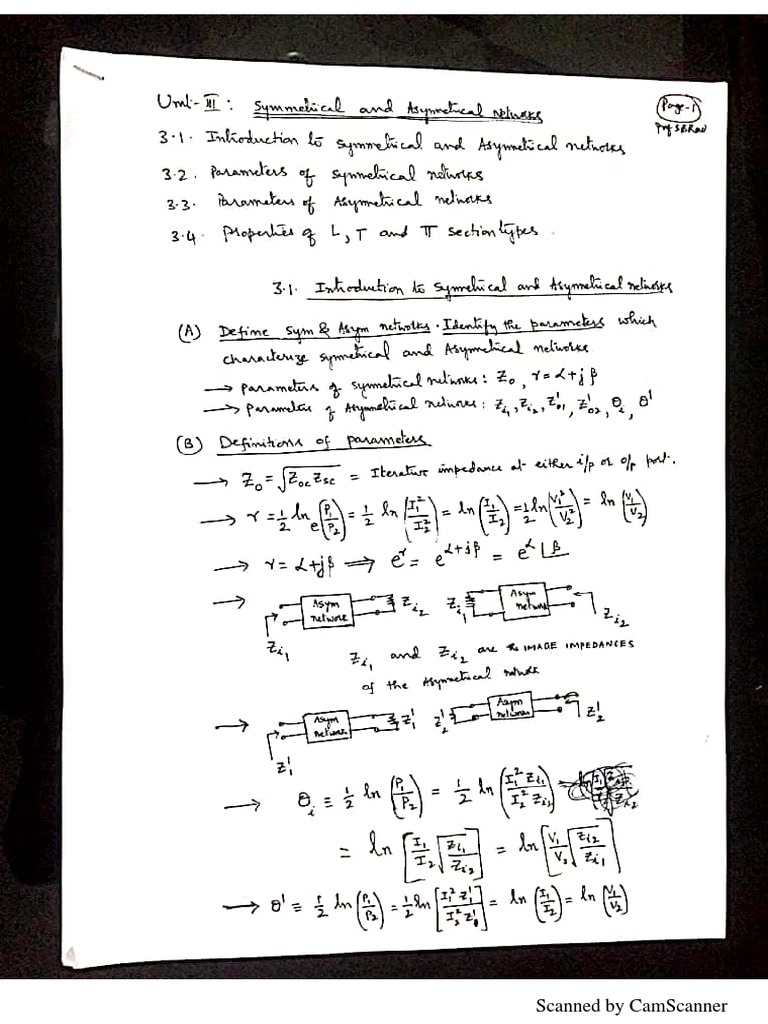 Unit-III: Symmetrical and Asymmetrical Networks
Page-1
Prof S B Rao
3.1. Introduction to Symmetrical and Asymmetrical networks
3.2. Parameters of Symmetrical networks
3.3. Parameters of Asymetrical networks
3.4. Properties of L, T and π section types.
3.1. Introduction to Symmetrical and Asymmetrical networks
(A) Define Sym & Asym networks. Identify the parameters which
characterize symetrical and Asymetrical networks
→ Parameters of symmetrical networks: Z₀, γ = α+jβ
→ Parameters of Asymetrical networks: Zi₁, Zi₂, Z'₀₁, Z'₀₂, θi, θ'
(B) Definitions of parameters
→ Z₀ = √(Zoc Zsc) = Iterative impedance at either i/p or o/p port.
→ γ = 1/2 lnₑ(P₁/P₂) = 1/2 ln(I₁²/I₂²) = ln(I₁/I₂) = 1/2 ln(V₁²/V₂²) = ln(V₁/V₂)
→ γ = α+jβ ⟹ e^γ = e^(α+jβ) = e^α ∠β
→ Asym network Zi₂ Zi₁ Asym network
Zi₁ Zi₂
Zi₁ and Zi₂ are the IMAGE IMPEDANCES
of the Asymmetrical network
→ Asym network Z'₁ Z'₂ Asym network Z'₂
Z'₁
→ θi ≡ 1/2 ln(P₁/P₂) = 1/2 ln(I₁² Zi₁/I₂² Zi₂)
= ln[I₁/I₂ √(Zi₁/Zi₂)] = ln[V₁/V₂ √(Zi₂/Zi₁)]
→ θ' ≡ 1/2 ln(P₁/P₂) = 1/2 ln[I₁² Z'₁/I₂² Z'] = ln(I₁/I₂) = ln(V₁/V₂)
Scanned by CamScanner